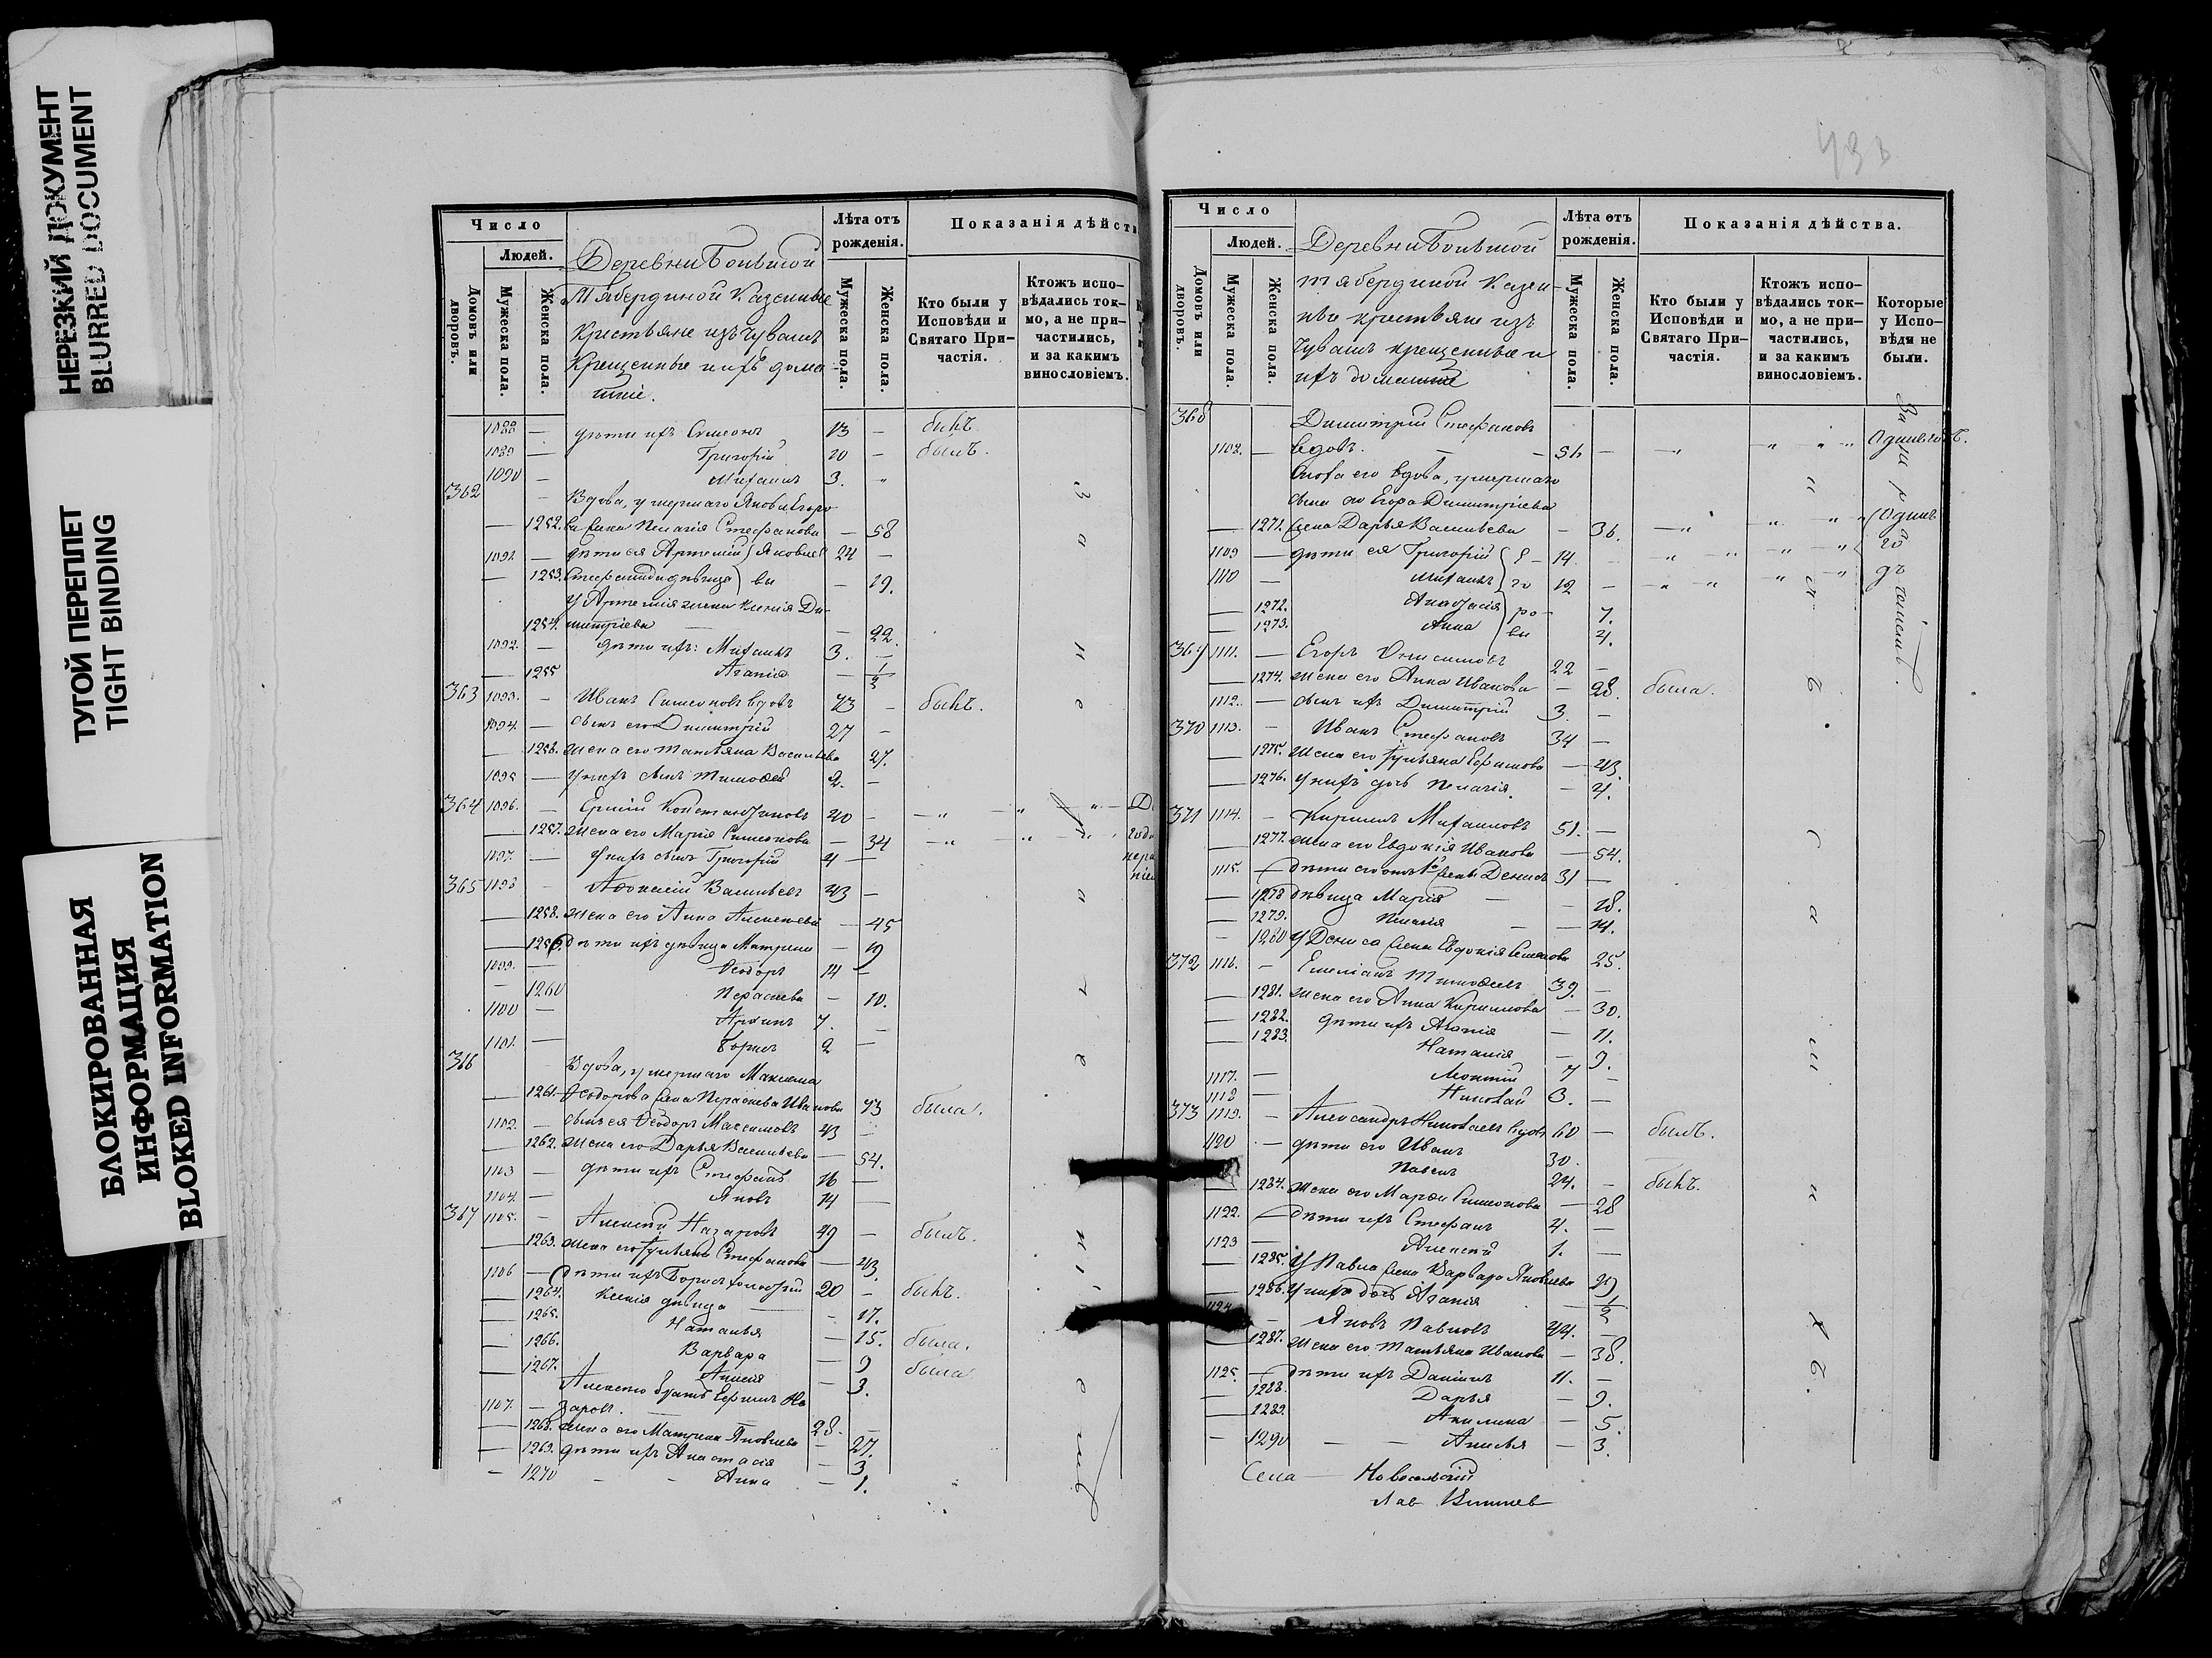 НЕРЕЗКИЙ ДОКУМЕНТ
BLURRED DOCUMENT
ТУГОЙ ПЕРЕПЛЕТ
TIGHT BINDING
БЛОКИРОВАННАЯ
ИНФОРМАЦИЯ
BLOKED INFORMATION
Число
Людей.
Домовъ или дворовъ.
Мужеска пола.
Женска пола.
Деревни Большой
Тябердиной Казенные
Крестьяне изъ чувашъ
Крещенные и ихъ дома-
шніе.
Лѣта отъ рожденія.
Мужеска пола.
Женска пола.
Показанія дѣйств
Кто были у Исповѣди и Святаго Причастія.
Ктожъ исповѣдались токмо, а не причастились, и за какимъ винословіемъ.
1088 — дѣти ихъ Симеонъ 13 — былъ.
1089 — Григорій 10 — былъ.
1090 — Михаилъ 3.
362 Вдова, умершаго Якова Егоро-
— 1252. ва жена Пелагія Стефанова — 58
1091 — дѣти ея Артемій Яковле 24 —
— 1253. Стефанида дѣвица вы — 19.
У Артемія жена Ксенія Ди-
1254. митріева — 22.
1092. — дѣти ихъ: Михаилъ 3. —
— 1255 Агапія — 1/2
363 1093. — Иванъ Симеоновъ вдовъ 73 — былъ.
1094. — сынъ его Димитрій 27 —
— 1256. жена его Татьяна Васильева 27.
1095 — У нихъ сынъ Тимоѳей 2. —
364 1096. — Ермій Константиновъ 40 —
— 1257. жена его Марія Симеонова — 34
1097. — У нихъ сынъ Григорій 4 —
365 1098 — Аѳонасій Васильевъ 43 —
— 1258. жена его Анна Алексѣева — 45
— 1259. дѣти ихъ дѣвица Матрена — 19
1099. — Ѳеодоръ 14 —
— 1260 Параскева — 10.
1100 — Архипъ 7. —
1101. — Борисъ 2 —
366 Вдова, умершаго Максима
— 1261. Ѳеодорова жена Параскева Иванова 73 была.
1102. — сынъ ея Ѳеодоръ Максимовъ 43 —
— 1262. жена его Дарья Васильева — 54.
1103 — дѣти ихъ Стефанъ 16 —
1104. — Яковъ 14 —
367 1105. — Алексѣй Назаровъ 49 — былъ.
— 1263. жена его Ульяна Стефанова — 43.
1106 — дѣти ихъ Борисъ холостъ 20 — былъ.
— 1264. Ксенія дѣвица — 17.
— 1265. Наталья — 15. была.
— 1266. Варвара — 9 была
— 1267. Анисія — 3.
Алексѣю братъ Ефимъ На-
1107. — заровъ. 28. —
— 1268. жена его Матрена Яковлева — 27.
— 1269. дѣти ихъ Анастасія — 3
— 1270 — Анна — 1.
З а н е р а д е н і е м ъ
Число
Людей.
Домовъ или дворовъ.
Мужеска пола.
Женска пола.
Деревни Большой
тябердиной Казен-
ные крестьяне изъ
Чувашъ крещенные и
ихъ домашніе
Лѣта отъ рожденія.
Мужеска пола.
Женска пола.
Показанія дѣйства.
Кто были у Исповѣди и Святаго Причастія.
Ктожъ исповѣдались токмо, а не причастились, и за какимъ винословіемъ.
Которые у Исповѣди не были.
368 Димитрій Стефановъ
1108. — вдовъ. — 56 —
Сноха его вдова, умершаго
сына его Егора Димитріева
— 1271. жена Дарья Васильева — 36.
1109 — дѣти ея Григорій 14. —
1110 — Михаилъ 12 —
— 1272. Анастасія 7.
— 1273. Анна 4.
369 1111. — Егоръ Онисимовъ 22 —
— 1274. жена его Анна Иванова — 28. была.
1112. — сынъ ихъ Димитрій 3. —
370 1113. — Иванъ Стефановъ 34 —
— 1275. жена его Ульяна Ефимова — 43.
— 1276. У нихъ дочь Пелагія. — 4.
371 1114. — Кириллъ Михаиловъ 51. —
— 1277. жена его Евдокія Иванова — 54.
1115. — дѣти его отъ 1й жены Денисъ 31 —
— 1278 дѣвица Марія — 18.
— 1279. Пелагія — 14.
— 1280 У Дениса жена Евдокія Семенова 25.
372 1116. — Емеліанъ Тимоѳеевъ 39. —
— 1281. жена его Анна Кириллова — 30.
— 1282. дѣти ихъ Агапія — 11.
— 1283. Наталія — 9.
1117. — Леонтій 7 —
1118 — Николай 3. —
373 1119. — Александръ Николаевъ вдовъ 60 — былъ.
1120 — дѣти его Иванъ 30.
Павелъ 24. — былъ.
— 1284. жена его Марѳа Симеонова — 28
1122. — дѣти ихъ Стефанъ 4. —
1123 — Алексѣй 1. —
— 1285. У Павла жена Варвара Яковлева 29
— 1286. У нихъ дочь Агапія — 1/2
1124 — Яковъ Павловъ 44. —
— 1287. жена его Татьяна Иванова — 38.
1125. — дѣти ихъ Даніилъ 11. —
— 1288. Дарья — 9.
— 1289. Акилина — 5.
— 1290 — Анисья — 3.
Села — Новосельскій